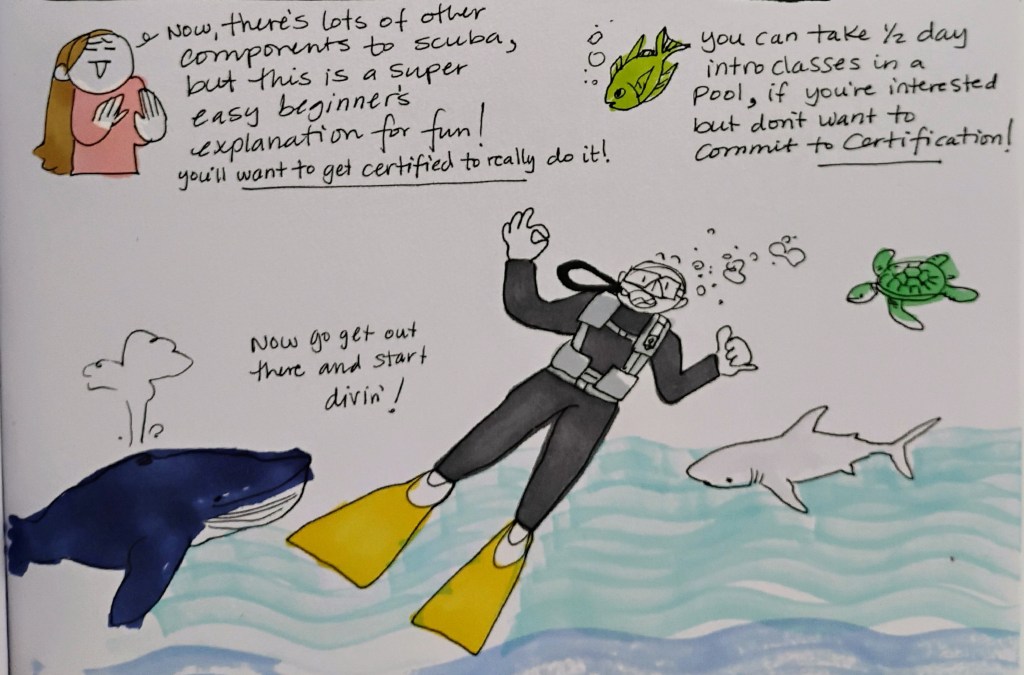 Now, there's lots of other
components to scuba,
but this is a super
easy beginner's
explanation for fun!
you'll want to get certified to really do it!
you can take 1/2 day
intro classes in a
pool, if you're interested
but don't want to
commit to certification!
Now go get out
there and start
divin'!